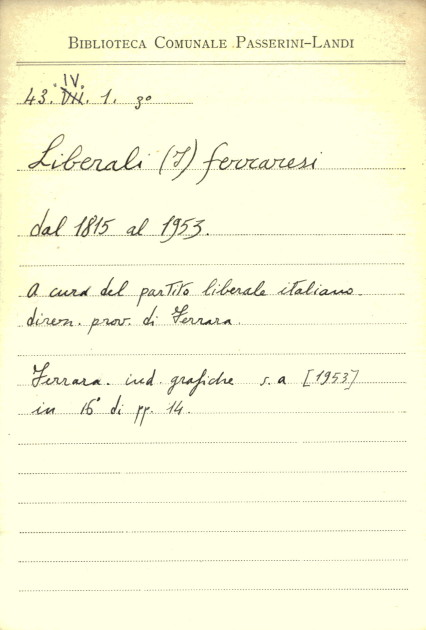 BIBLIOTECA COMUNALE PASSERINI-LANDI
IV.
43. VII. 1. 3º
Liberali (I) ferraresi
dal 1815 al 1953.
A cura del partito liberale italiano.
direz. prov. di Ferrara.
Ferrara. ind. grafiche s.a [1953]
in 16° di pp. 14.